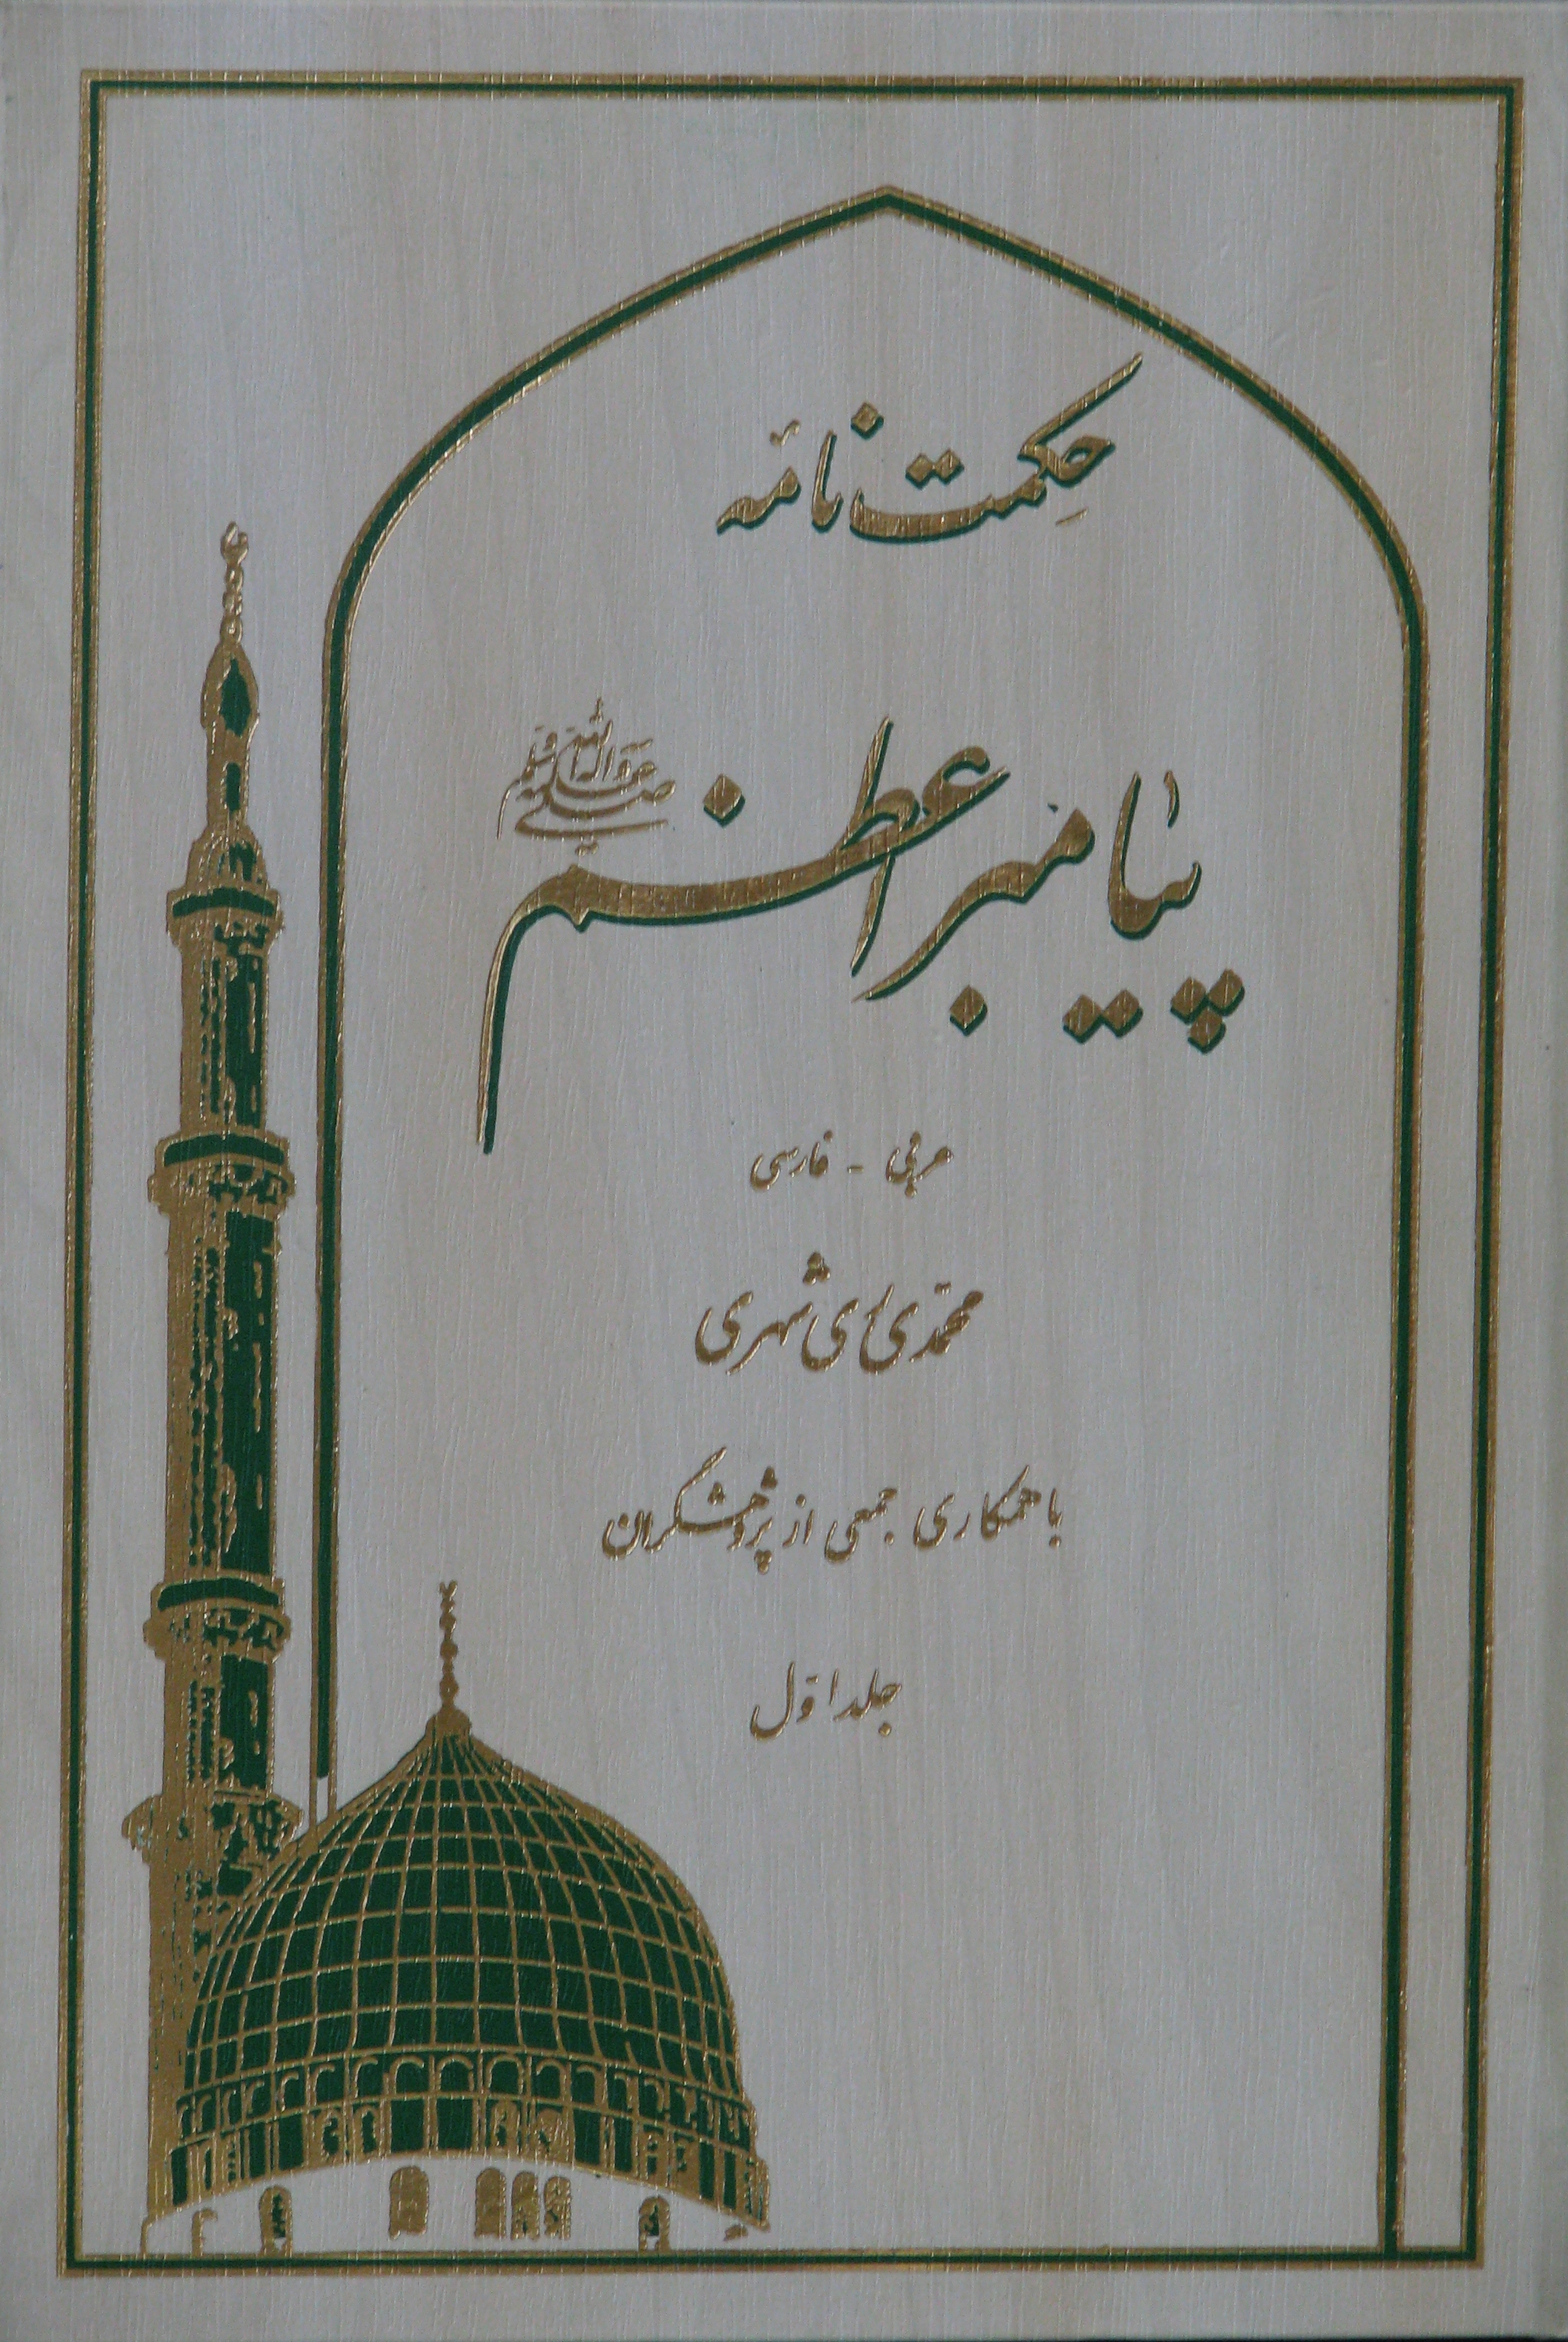 حِکمت نامهٔ
پیامبر اعظم صلی الله علیه و آله و سلم
عربی - فارسی
محمّدی ری شهری
با همکاری جمعی از پژوهشگران
جلد اوّل